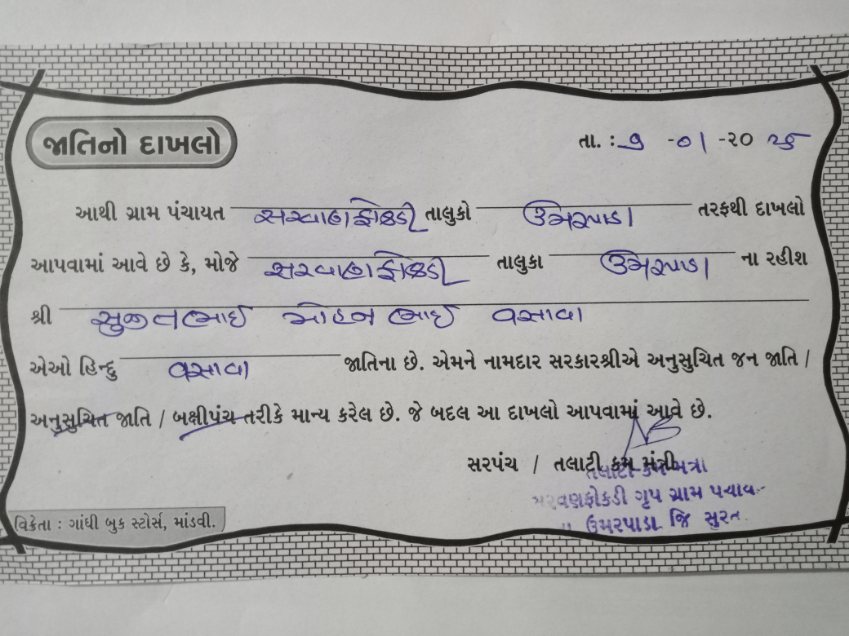 જાતિનો દાખલો
તા. : ૧ -૦૧ -૨૦ ૨૬
આથી ગ્રામ પંચાયત સરવણફોકડી તાલુકો ઉમરપાડા તરફથી દાખલો
આપવામાં આવે છે કે, મોજે સરવણફોકડી તાલુકા ઉમરપાડા ના રહીશ
શ્રી સુજીતભાઇ મોહનભાઇ વસાવા
એઓ હિન્દુ વસાવા જાતિના છે. એમને નામદાર સરકારશ્રીએ અનુસુચિત જન જાતિ /
અનુસુચિત જાતિ / બક્ષીપંચ તરીકે માન્ય કરેલ છે. જે બદલ આ દાખલો આપવામાં આવે છે.
સરપંચ / તલાટી કમ મંત્રી
તલાટી કમ મંત્રી
સરવણફોકડી ગૃપ ગ્રામ પંચાય
ઉમરપાડા જિ સુરત
વિક્રેતા : ગાંધી બુક સ્ટોર્સ, માંડવી.